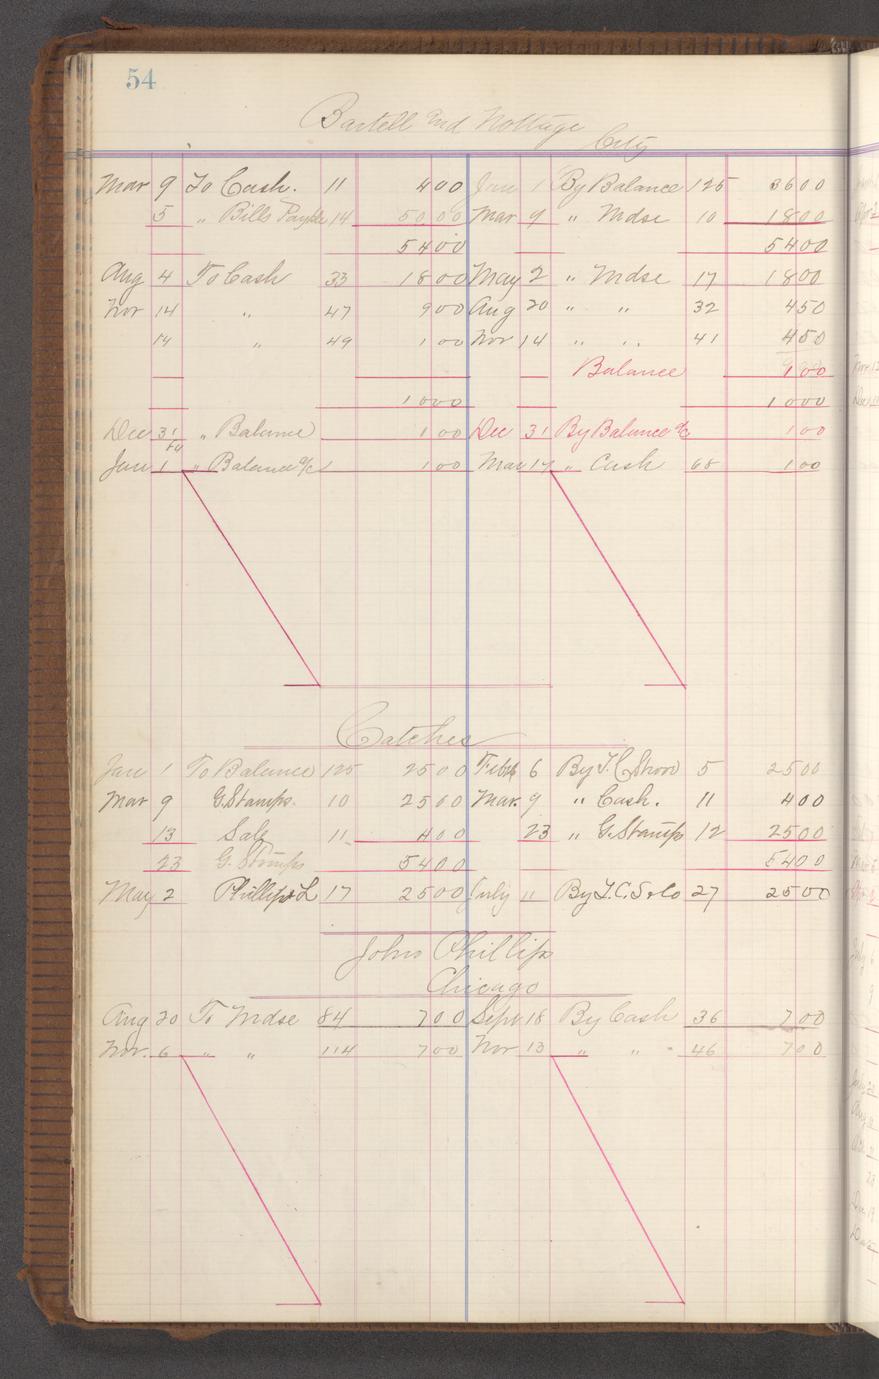 54
Bartell and Nottage
City
Mar 9 To Cash. 11 400 Jan 1 By Balance 125 3600
5 " Bills Payble 14 5000 Mar 9 " Mdse 10 1800
5400 5400
Aug 4 To Cash 33 1800 May 2 " Mdse 17 1800
Nov 14 " 47 900 Aug 20 " " 32 450
14 " 49 100 Nov 14 " " 41 450
Balance 100
1000 1000
Dec 31 " Balance 100 Dec 31 By Balance a/c 100
Jan 1 " Balance a/c 100 Mar 17 " Cash 68 100
Catches
Jan 1 To Balance 125 2500 Feb 6 By 5 2500
Mar 9 G. Stamps. 10 2500 Mar. 9 " Cash. 11 400
13 Sale 11 400 23 " G. Stamps 12 2500
23 G. Stamps 5400 5400
May 2 Phillips & L 17 2500 July 11 By T. C. S & Co 27 2500
John Phillips
Chicago
Aug 20 To Mdse 84 700 Sept 18 By Cash 36 700
Nov. 6 " " 114 700 Nov 13 " " 46 700